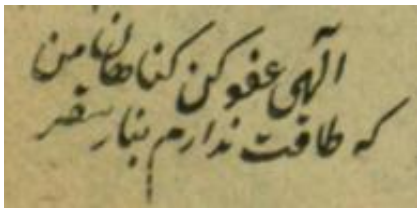 الهی عفو کن گناهان من
که طاقت ندارم بنار سقر